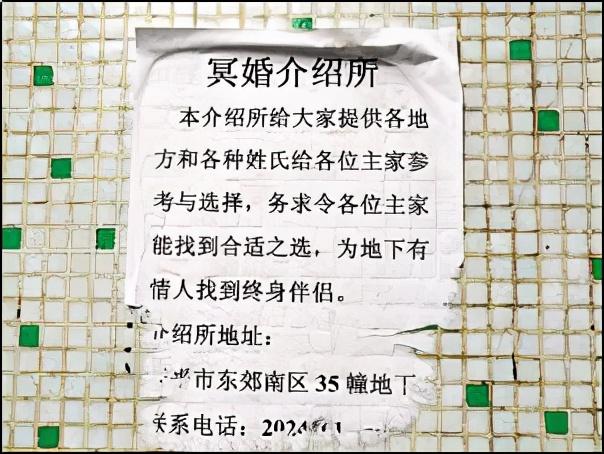 冥婚介绍所
本介绍所给大家提供各地
方和各种姓氏给各位主家参
考与选择，务求令各位主家
能找到合适之选，为地下有
情人找到终身伴侣。
介绍所地址：
市东郊南区 35 幢地下
联系电话：202